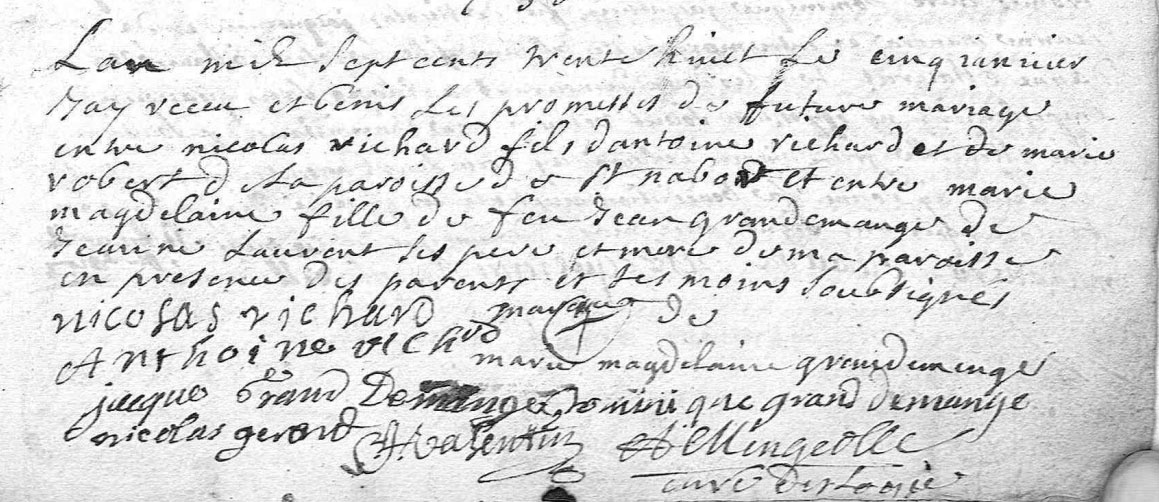 Lan mil sept cents trente huict Le cinq ianvier
Jay receu et benis Les promesses de future mariage
entre nicolas richard fils dantoine richard et de marie
robert de La paroisse de St nabort et entre marie
magdelaine fille de feu Jean grandemange de
Jeanne Laurent ses pere et mere de ma paroisse
en presence des parents et tesmoins soubsignés
nicolas richard marque de
Anthoine richard marie magdelaine grandemenge
jacque Grand Demange Dominique grand demange
nicolas gerard Valentin Mingeolle
curé